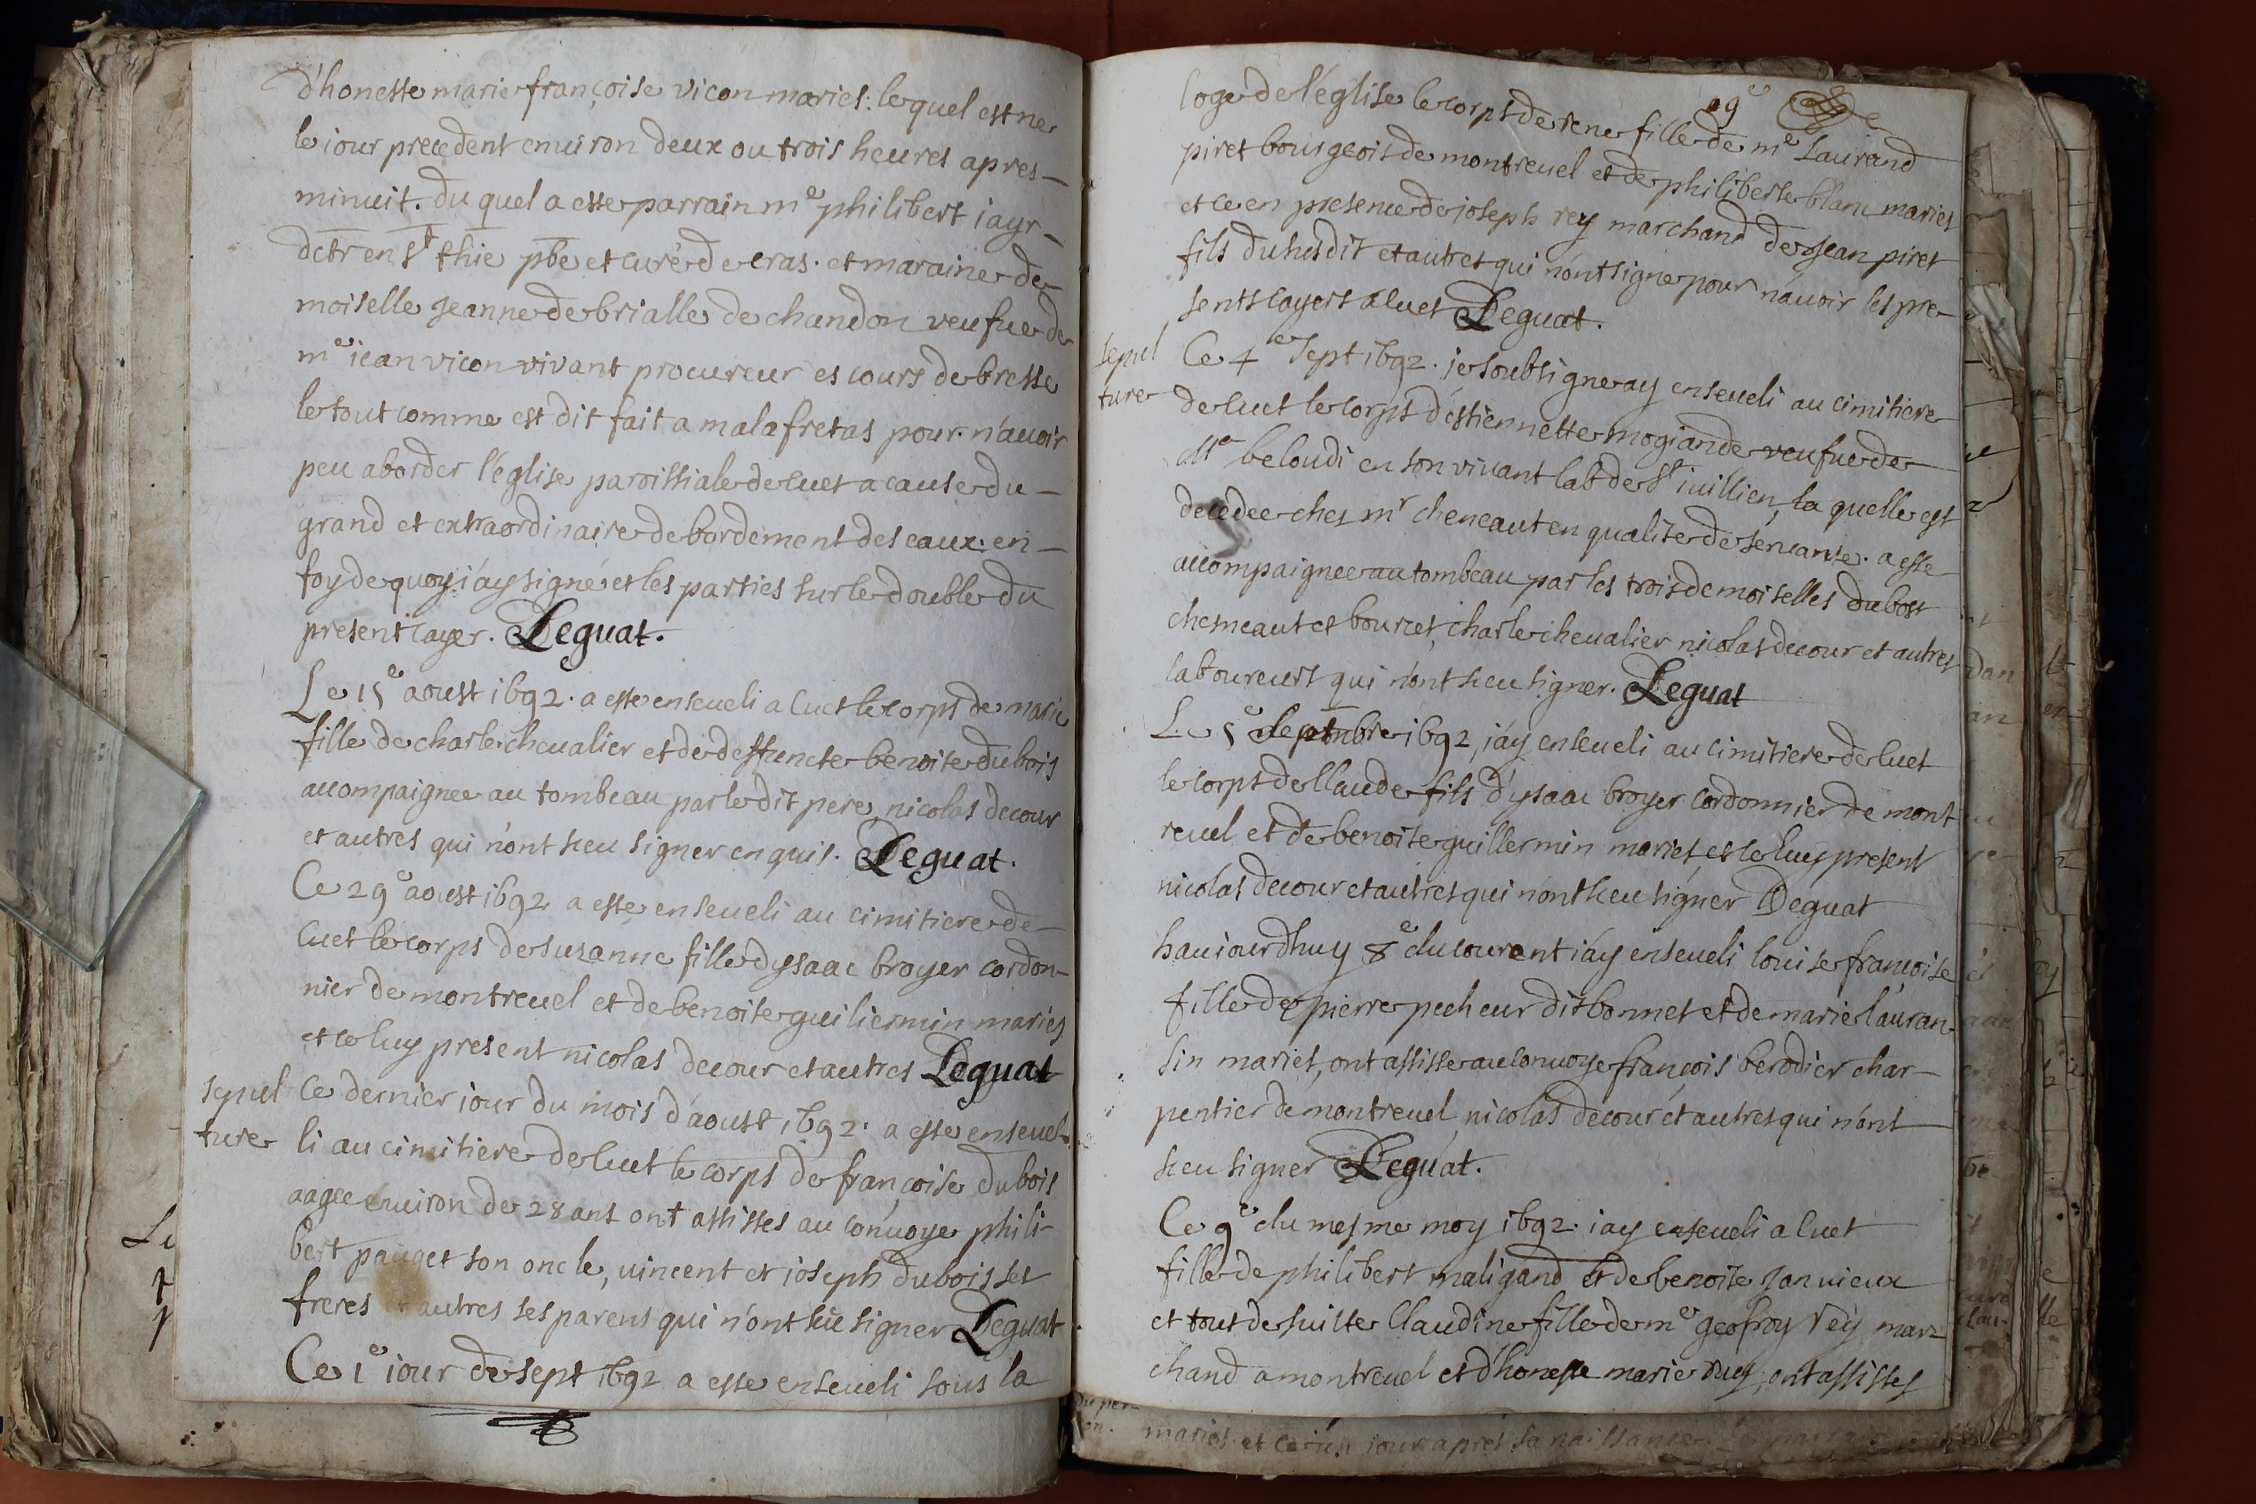 d'honeste marie françoise vicon mariés. lequel est né
le iour precedent enuiron deux ou trois heures apres
minuit. du quel a este parrain me philibert iayr
dctr en st thie pbe et curé de cras. et maraine de
moiselle jeanne de brialle de chandon veufue de
me iean vicon vivant procureur es cours de bresse
le tout comme est dit fait a malafretas pour n'auoir
peu aborder l'église paroissiale de cuet a cause du
grand et extraordinaire debordement des eaux. en
foy de quoy i'ay signé et les parties sur le double du
present cayer. Deguat.
Le 15e aoust 1692. a esté enseueli a Cuet le corps de marie
fille de charle cheualier et de deffuncte benoite dubois
accompaignee au tombeau par le dit pere, nicolas decour
et autres qui n'ont sceu signer enquis. Deguat.
Ce 29e aoust 1692 a este enseueli au cimitiere de
Cuet le corps de suzanne fille d'ysaac broyer cordon-
nier de montreuel et de benoite guiliermin mariés
et ce luy present nicolas decour et autres Deguat
sepul
ture
Ce dernier iour du mois d'aoust 1692. a este enseue-
li au cimitiere de cuet le corps de françoise dubois
aagee enuiron de 28 ans ont assistes au conuoye phili-
bert pauget son oncle, vincent et ioseph dubois ses
freres autres ses parens qui n'ont sceu signer Deguat
Ce 1e iour de sept 1692 a este enseueli sous la
29e
loge de l'église le corps de rene fille de me Laurand
piret bourgeois de montreuel et de philiberte blanc mariés
et ce en presence de joseph rey marchand de jean piret
fils du susdit et autres qui n'ont signe pour n'auoir les pre-
sents cayers a cuet Deguat.
sepul
ture
Ce 4e sept 1692. je soubsigne ay enseueli au cimitiere
de cuet le corps d'estiennette mogiande veufue de
beloudi en son viuant lab de st iullien, la quelle est
decedee ches mr cheneaut en qualite de seruante. a este
accompaignee au tombeau par les trois demoiselles dubost
chesneaut et bourcet, charle cheualier nicolas decour et autres
laboureurs qui n'ont sceu signer. Deguat
Le 5e septembre 1692, i'ay enseueli au cimitiere de cuet
le corps de Claude fils d'ysaac broyer cordonnier de mont
reuel et de benoite guillermin mariés, et ce luy present
nicolas decour et autres qui n'ont sceu signer Deguat
haujourdhuy 8e du courent i'ay enseueli louise françoise
fille de pierre pecheur dit bonnet et de marie lauran-
sin mariés, ont assisté au conuoye françois berodier char-
pentier de montreuel nicolas decour et autres qui n'ont
sceu signer Deguat.
Ce 9e du mesme moy 1692. i'ay enseueli a cuet
fille de philibert maligand et de benoite janvieux
et tout de suitte Claudine fille de me geofroy rey mar-
chand a montreuel et d'honeste marie duy, ont assistes